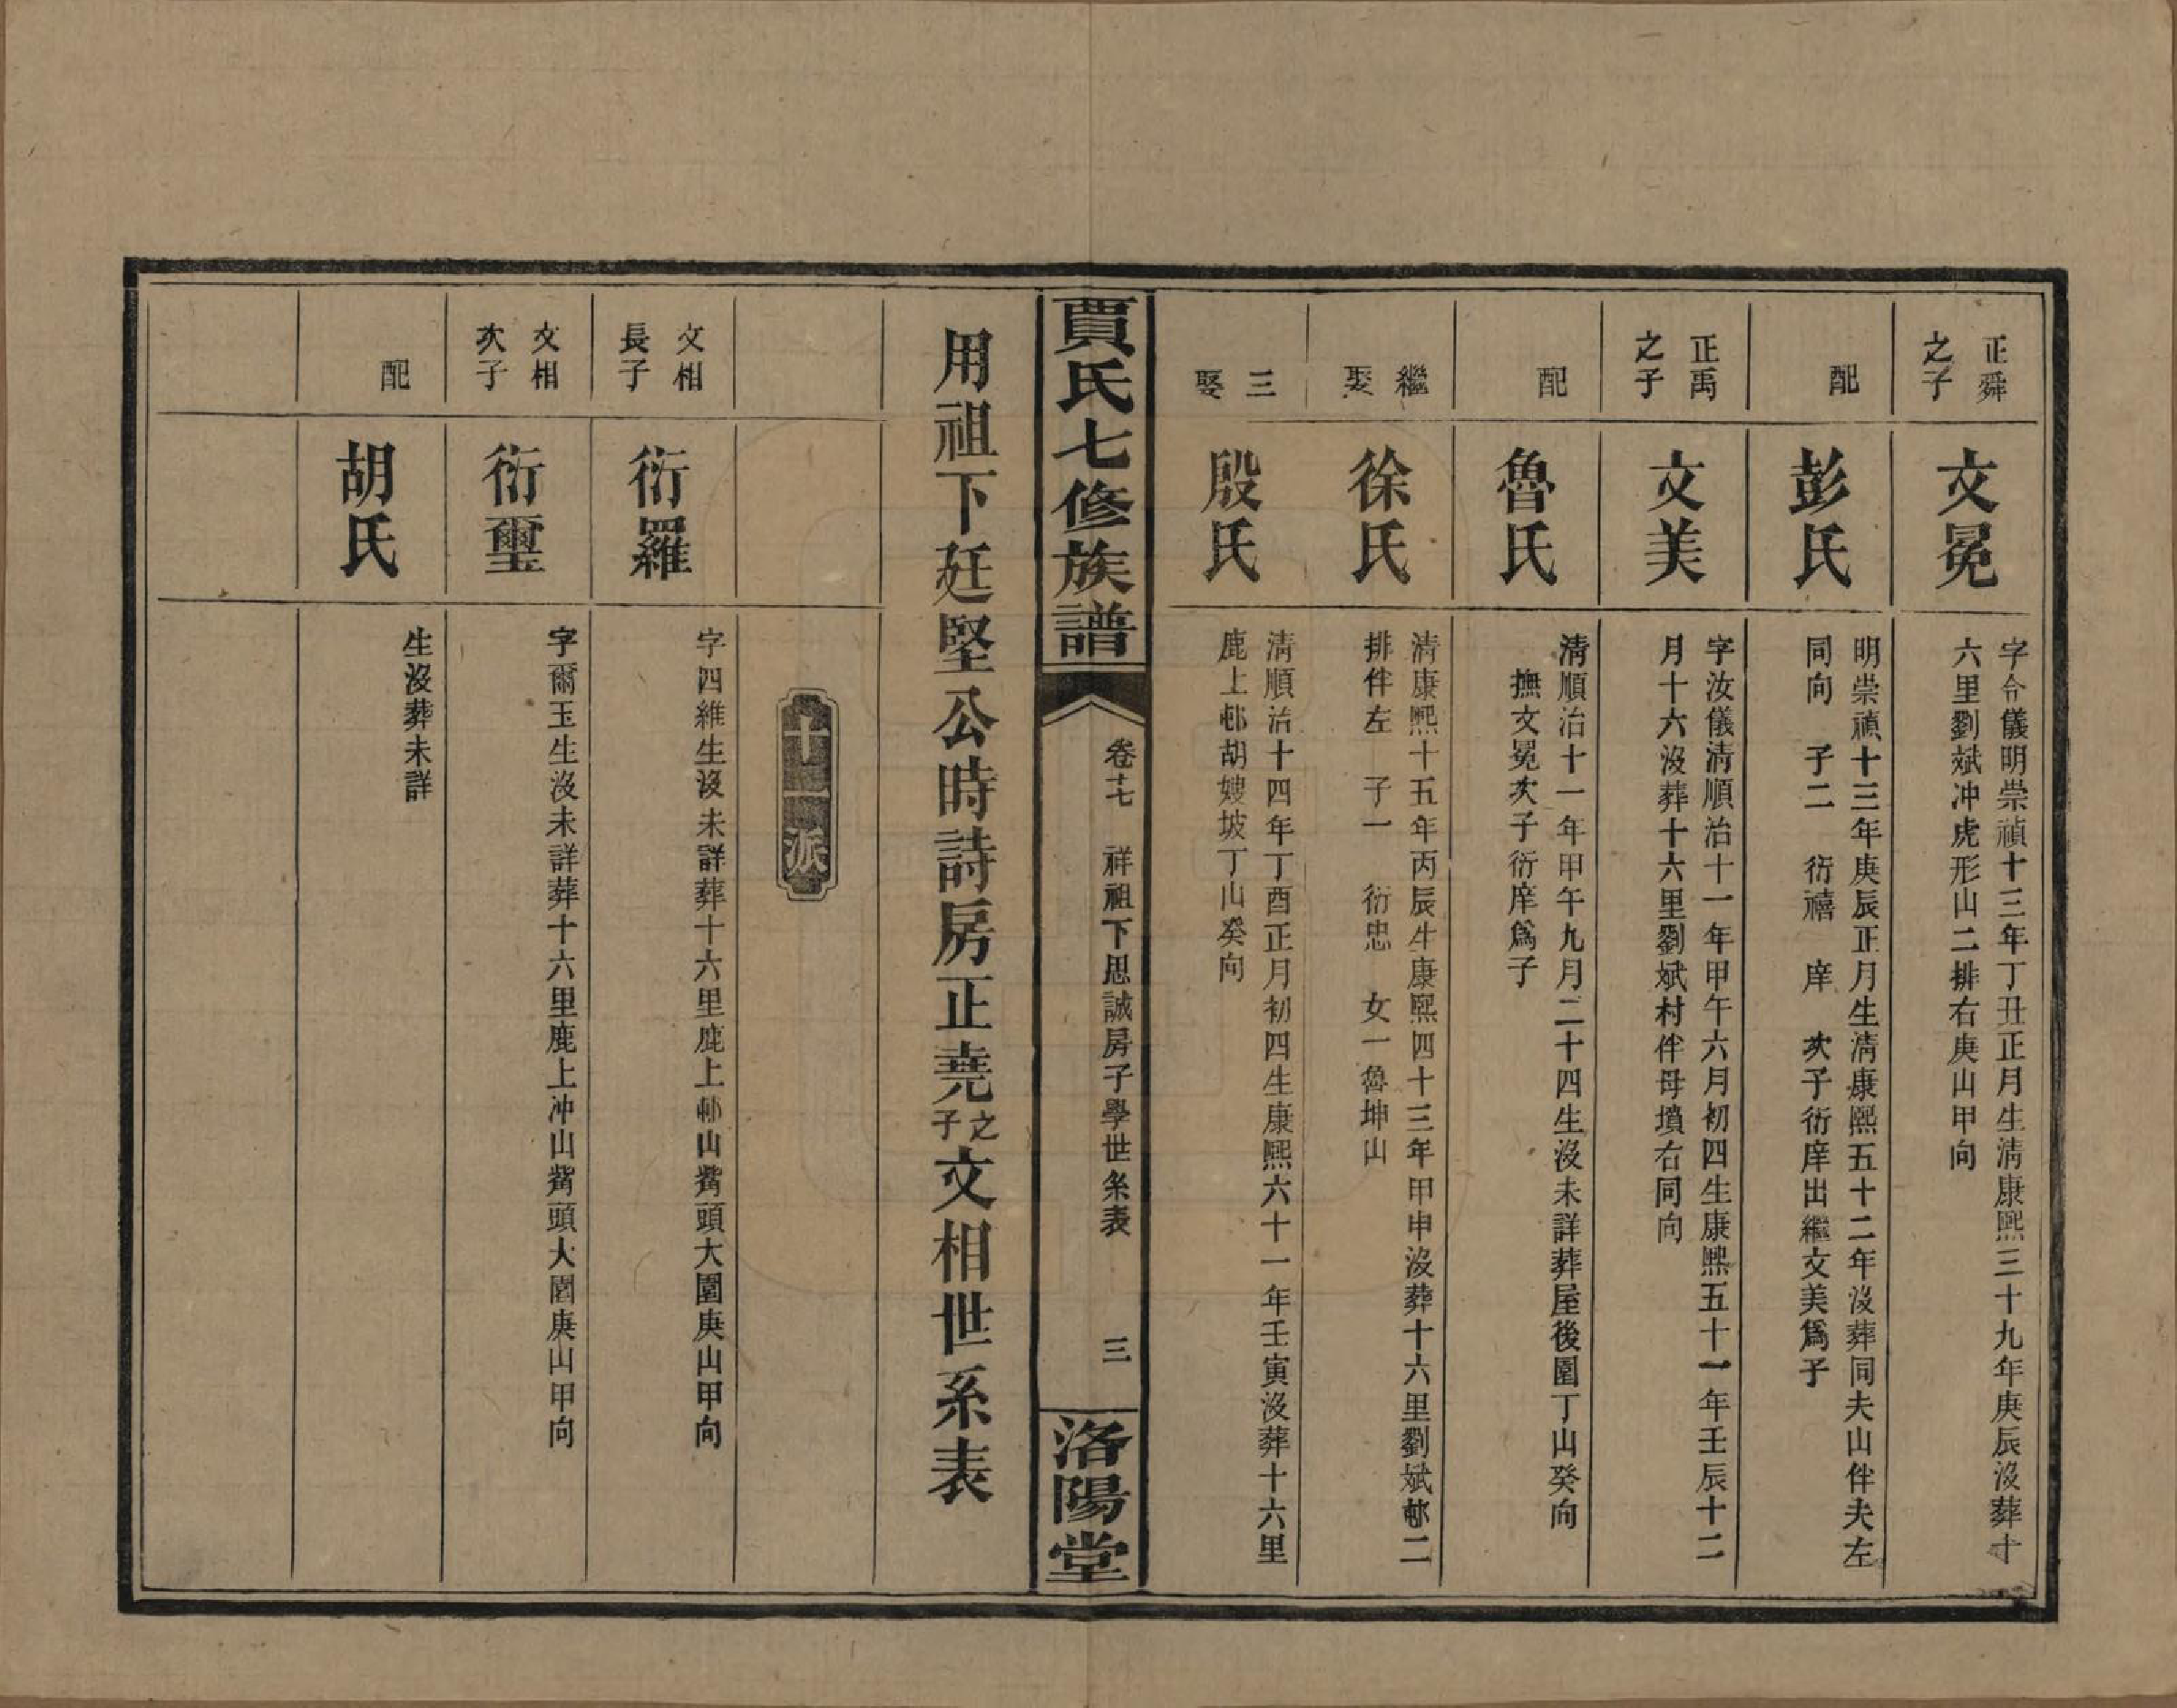 正舜
之子
文冕
字令儀明崇禎十三年丁丑正月生清康熙三十九年庚辰沒葬十
六里劉斌冲虎形山二排右庚山甲向
配
彭氏
明崇禎十三年庚辰正月生清康熙五十二年沒葬同夫山伴夫左
同向　子二　衍禧　庠　次子衍庠出繼文美爲子
正禹
之子
文美
字汝儀清順治十一年甲午六月初四生康熙五十一年壬辰十二
月十六沒葬十六里劉斌村伴母墳右同向
配
魯氏
清順治十一年甲午九月二十四生沒未詳葬屋後園丁山癸向
撫文冕次子衍庠爲子
繼
娶
徐氏
清康熙十五年丙辰生康熙四十三年甲申沒葬十六里劉斌邨二
排伴左　子一　衍忠　女一魯坤山
三
娶
殷氏
清順治十四年丁酉正月初四生康熙六十一年壬寅沒葬十六里
鹿上邨胡嫂坡丁山癸向
賈氏七修族譜
卷十七　祥祖下思誠房子學世系表　三
洛陽堂
用祖下廷堅公時詩房正堯之子文相世系表
十一派
文相
長子
衍羅
字四維生沒未詳葬十六里鹿上邨山觜頭大園庚山甲向
文相
次子
衍璽
字爾玉生沒未詳葬十六里鹿上冲山觜頭大園庚山甲向
配
胡氏
生沒葬未詳